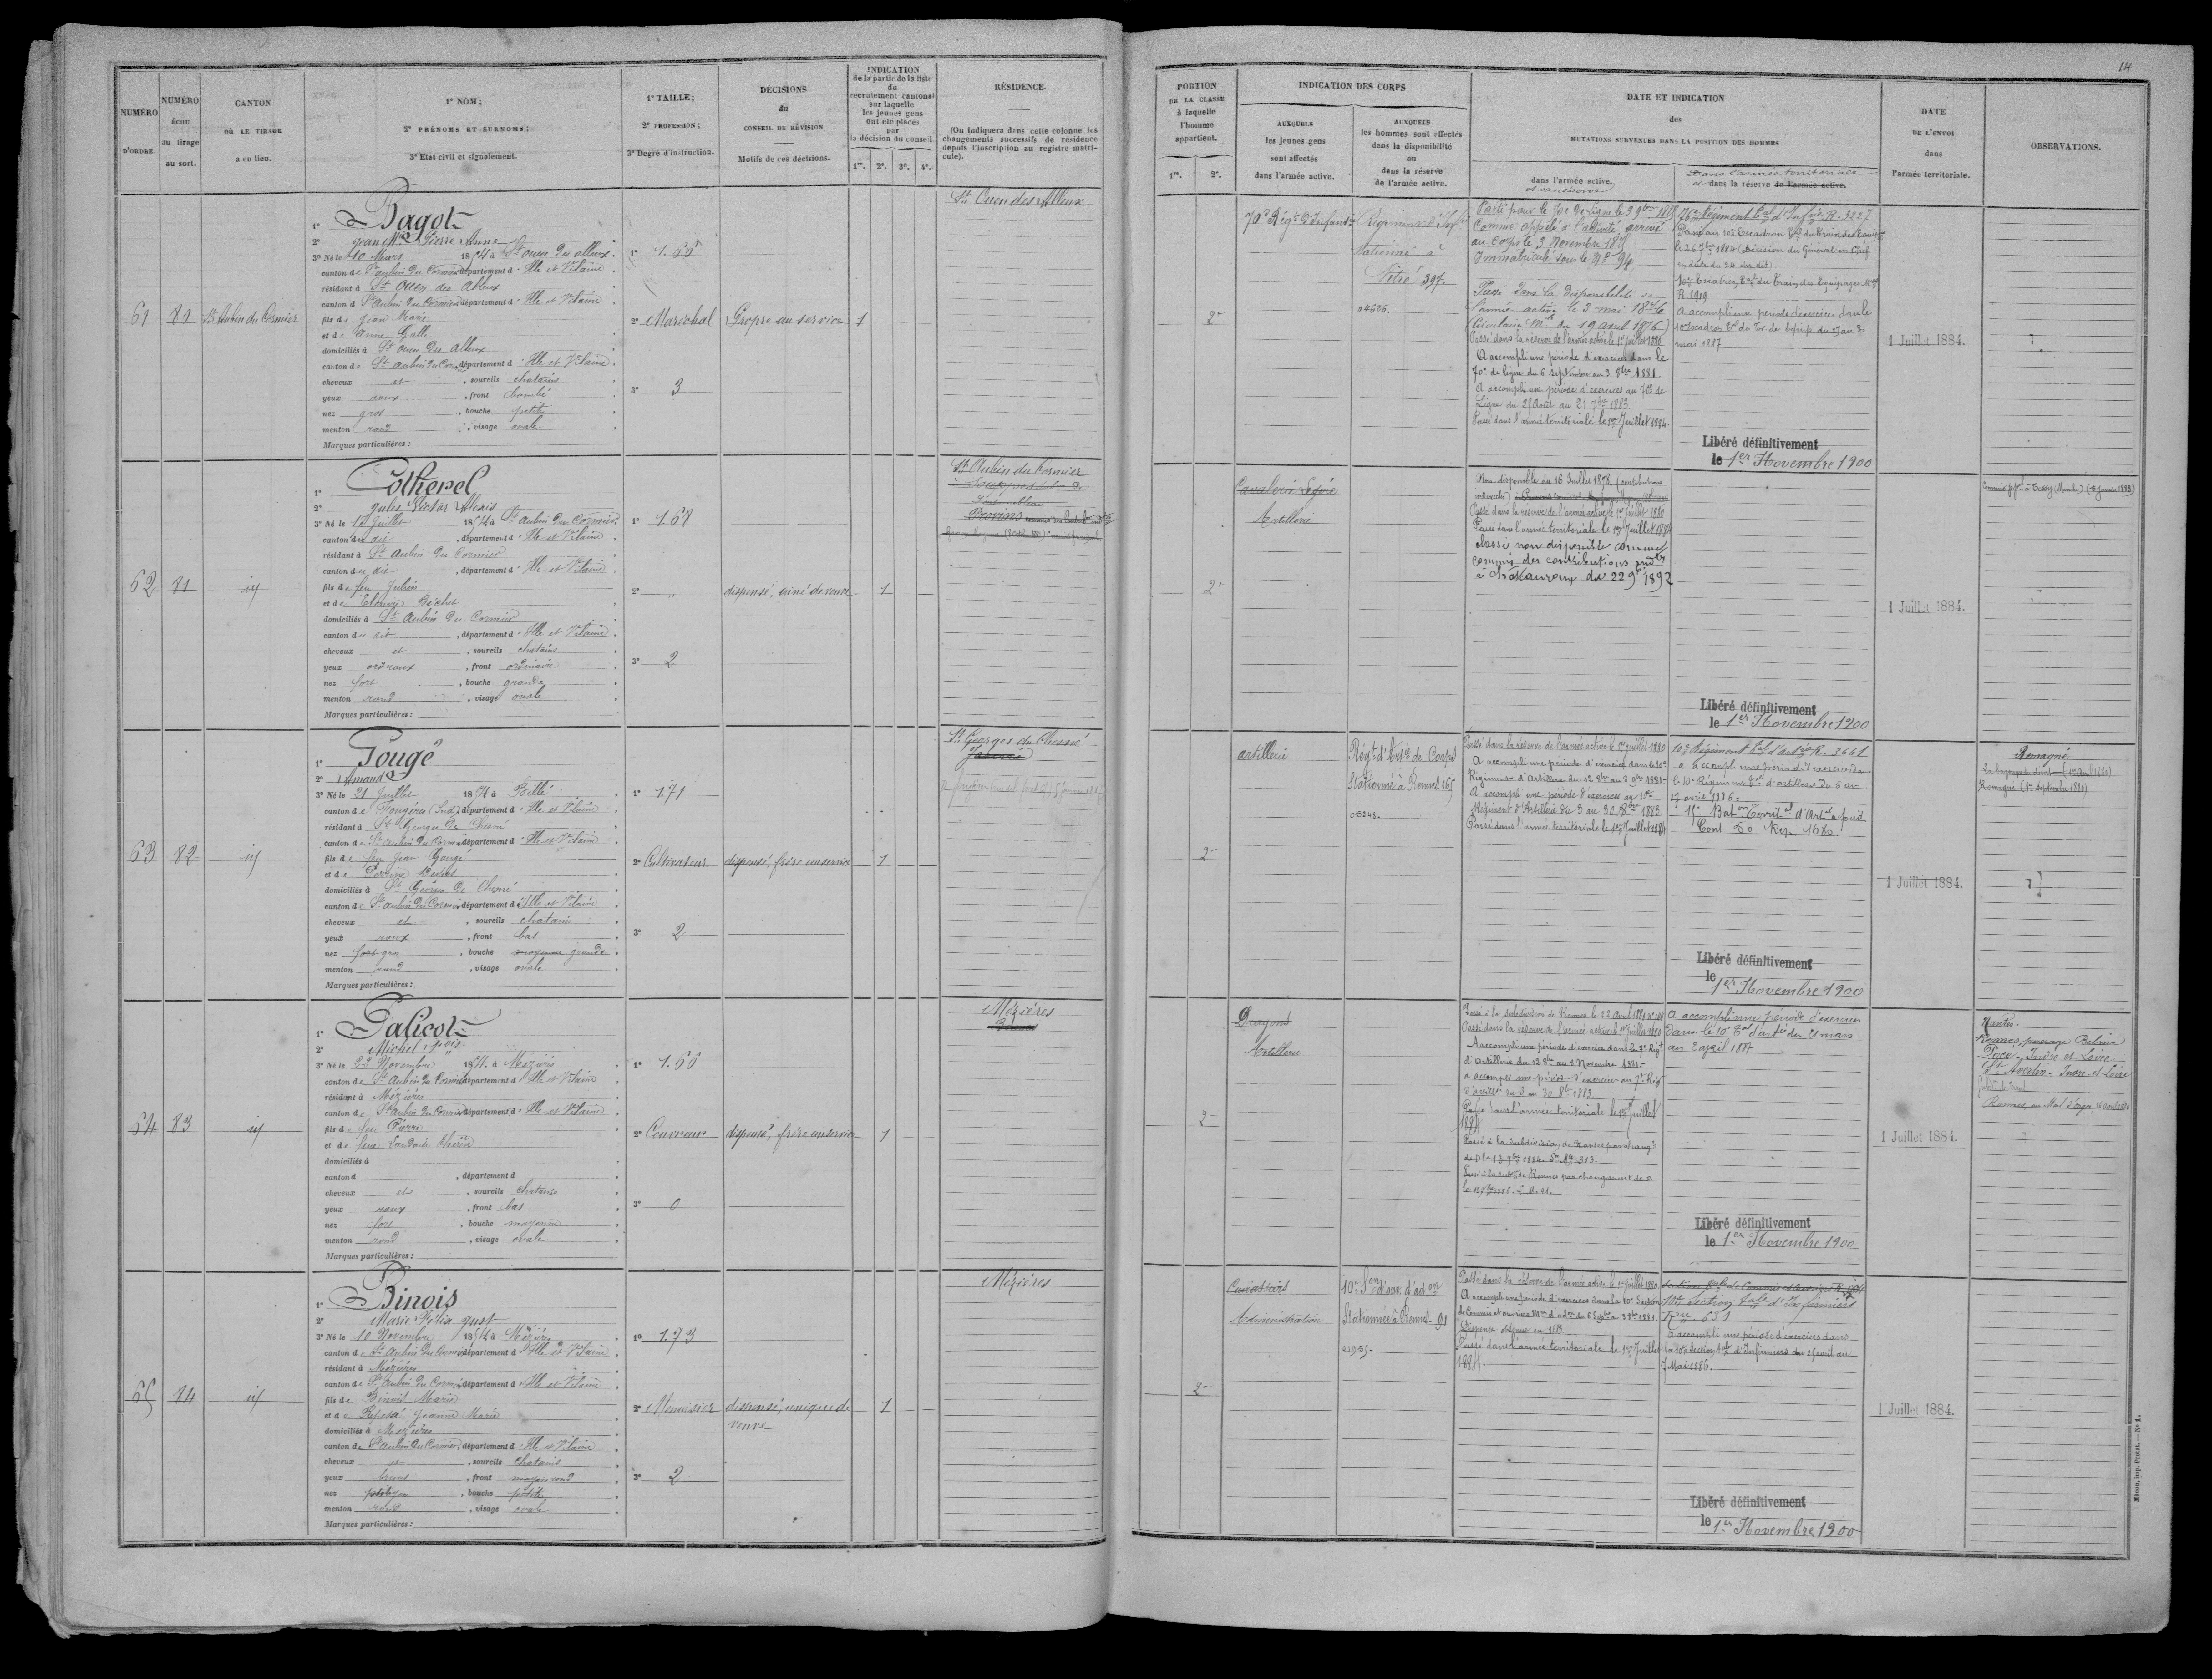 NUMÉRO D'ORDRE.
NUMÉRO ÉCHU au tirage au sort.
CANTON OÙ LE TIRAGE a eu lieu.
1° NOM;
2° PRÉNOMS ET SURNOMS;
3° Etat civil et signalement.
1° TAILLE;
2° PROFESSION;
3° Degré d'instruction.
DÉCISIONS
du
CONSEIL DE RÉVISION
Motifs de ces décisions.
INDICATION
de la partie de la liste
du
recrutement cantonal
sur laquelle
les jeunes gens
ont été placés
par
la décision du conseil.
1re. 2e. 3e. 4e.
RÉSIDENCE.
(On indiquera dans cette colonne les
changements successifs de résidence
depuis l'inscription au registre matri-
cule).
61
81
St Aubin du Cormier
1° Bagot
2° Jean Mie Pierre Anne
3° Né le 10 Mars 1854 à St Ouen des alleux
canton de St aubin du Cormier département d'Ille et Vilaine
résidant à St Ouen des Alleux
canton d St Aubin du Cormier département d'Ille et Vilaine
fils de Jean Marie
et de Anne Galle
domiciliés à St Ouen des Alleux
canton de St aubin du Corm département d'Ille et Vilaine
cheveux et , sourcils chatains
yeux roux , front bombé
nez gros , bouche petite
menton rond , visage ovale
Marques particulières :
1° 1.66
2° Maréchal
3° 3
Propre au service
1
St Ouen des Alleux
62
81
id
1° Cotherel
2° Jules Victor Alexis
3° Né le 12 Juillet 1854 à St Aubin du Cormier
canton du dit , département d'Ille et Vilaine
résidant à St Aubin du Cormier
canton du dit , département d'Ille et Vilaine
fils de feu Julien
et de Elouise Béchet
domiciliés à St Aubin du Cormier
canton du dit , département d'Ille et Vilaine
cheveux et , sourcils chatains
yeux roux , front ordinaire
nez fort , bouche grande
menton rond , visage ovale
Marques particulières :
1° 1.68
2° "
3° 2
dispensé, ainé de veuve
1
St Aubin du Cormier
Provins
63
82
id
1° Gougé
2° Armand
3° Né le 21 Juillet 1854 à Billé
canton de Fougères (Sud) département d'Ille et Vilaine
résidant à St Georges de Chesné
canton de St Aubin du Corm département d'Ille et Vilaine
fils de feu Jean Gougé
et de Perrine
domiciliés à St Georges de Chesné
canton de St aubin du Cormier département d'Ille et Vilaine
cheveux et , sourcils chatains
yeux roux , front bas
nez fort gros , bouche moyenne grande
menton rond , visage ovale
Marques particulières :
1° 171
2° Cultivateur
3° 2
dispensé, frère au service
1
St Georges de Chesné
Javené
64
83
id
1° Galicot
2° Michel Fçois
3° Né le 23 Novembre 1854 à Mézières
canton de St Aubin du Cormier département d'Ille et Vilaine
résidant à Mézières
canton de St Aubin du Cormier département d'Ille et Vilaine
fils de feu Pierre
et de feue
domiciliés à
canton d , département d
cheveux et , sourcils chatains
yeux roux , front bas
nez fort , bouche moyenne
menton rond , visage ovale
Marques particulières :
1° 1.66
2° Couvreur
3° 0
dispensé, frère au service
1
Mézières
Rennes
65
84
id
1° Binois
2° Marie Félix Just
3° Né le 10 Novembre 1854 à Mézières
canton de St Aubin du Cormier département d'Ille et Vilaine
résidant à Mézières
canton de St Aubin du Cormier département d'Ille et Vilaine
fils de Binois Marie
et de Jeanne Marie
domiciliés à Mézières
canton de St Aubin du Cormier département d'Ille et Vilaine
cheveux et , sourcils chatains
yeux bruns , front moyen rond
nez , bouche petite
menton rond , visage ovale
Marques particulières :
1° 1.73
2° Menuisier
3° 2
dispensé, unique de
veuve
1
Mézières
14
PORTION
DE LA CLASSE
à laquelle
l'homme
appartient.
1re. 2e.
INDICATION DES CORPS
AUXQUELS
les jeunes gens
sont affectés
dans l'armée active.
AUXQUELS
les hommes sont affectés
dans la disponibilité
ou
dans la réserve
de l'armée active.
DATE ET INDICATION
des
MUTATIONS SURVENUES DANS LA POSITION DES HOMMES
dans l'armée active.
et réserve
Dans l'armée territoriale
et dans la réserve de l'armée active.
DATE
DE L'ENVOI
dans
l'armée territoriale.
OBSERVATIONS.
2e
70e Régt d'Infanterie
Régiment d'Infie
stationné à
Vitré 397.
04686.
Parti pour le 70e de ligne le 3 9bre 1875
Comme appelé à l'activité, arrivé
au corps le 3 Novembre 1875
Immatriculé sous le No 94
Passé dans la disponibilité de
l'armée active le 3 mai 1876
(Circulaire Mlle du 19 avril 1876)
Passé dans la réserve de l'armée active le 1er juillet 1880
A accompli une période d'exercices dans le
70e de ligne du 6 septembre au 3 8bre 1881.
A accompli une période d'exercices au 70e de
Ligne du 25 Août au 21 7bre 1883.
Passé dans l'armée territoriale le 1er Juillet 1884.
76e Régiment tal d'Infie R. 3227
Passé au 10e Escadron tal du Train des Equip
le 26 7bre 1884 (Décision du Général en Chef
en date du 24 du dit)
10e Escadron tal du Train des Equipages Mres
R. 1919
a accompli une période d'exercices dans le
10e Escadron tal du Tr. des Equip. du au
mai 1887
Libéré définitivement
le 1er Novembre 1900
1 Juillet 1884.
2e
Cavalerie Légère
Artillerie
Non-disponible du 16 Juillet 1878. (contributions
indirectes)
Passé dans la réserve de l'armée active le 1er Juillet 1880
Passé dans l'armée territoriale le 1er Juillet 1884
classé non disponible comme
commis des contributions indtes
à Châteauroux du 22 9bre 1892
Libéré définitivement
le 1er Novembre 1900
1 Juillet 1884.
2e
artillerie
Régt d'Artie de Corps
Stationné à Rennes 165
Passé dans la réserve de l'armée active le 1er juillet 1880
A accompli une période d'exercices dans le 10e
Régiment d'Artillerie du 12 8bre au 8 9bre 1881.
A accompli une période d'exercices au
Régiment d'Artillerie du 3 au 30 8bre 1883.
Passé dans l'armée territoriale le 1er Juillet 1884
10e Régiment tal d'artie R. 2661
a accompli une période d'exercices dans
le 10e Régiment tal d'artillerie du 6 au
17 avril 1886.
11e Baton Territal d'Artie à pied
Cont. 50 Rep. 1680
Libéré définitivement
le 1er Novembre 1900
1 Juillet 1884.
Romagné
Romagné (1er septembre 1880)
2e
Dragons
Artillerie
Passé dans la réserve de l'armée active le 1er Juillet 1880
A accompli une période d'exercices dans le 7e Régt
d'Artillerie du 12 8bre au 8 Novembre 1881.
a accompli une période d'exercices au 7e Régt
d'artillie du 3 au 30 8bre 1883.
Passé dans l'armée territoriale le 1er Juillet
1884
Passé à la subdivision de Nantes par changt
de Dle 13 9bre 1884.
Passé à la subon de Rennes par changement de
a accompli une période d'exercices
dans le 10e tal d'artie du 21 mars
au 2 avril 1887
Libéré définitivement
le 1er Novembre 1900
1 Juillet 1884.
Nantes.
Rennes, passage Belair
Indre et Loire
St Avertin - Indre et Loire
2e
Cuirassiers
Administration
10e Son d'ouv. d'adon
Stationnée à Rennes 91
01935.
Passé dans la réserve de l'armée active le 1er juillet 1880.
A accompli une période d'exercices dans la 10e Section
de Commis et ouvriers Mres d'adon du 6 Septbre au 3 8bre 1881.
Dispensé
Passé dans l'armée territoriale le 1er Juillet
1884.
10e Section tale d'Infirmiers
Rre 631
a accompli une période d'exercices dans
la 10e Section tale d'Infirmiers du 25 avril au
7 Mai 1886.
Libéré définitivement
le 1er Novembre 1900
1 Juillet 1884.
Mâcon, imp. Protat. — N° 1.